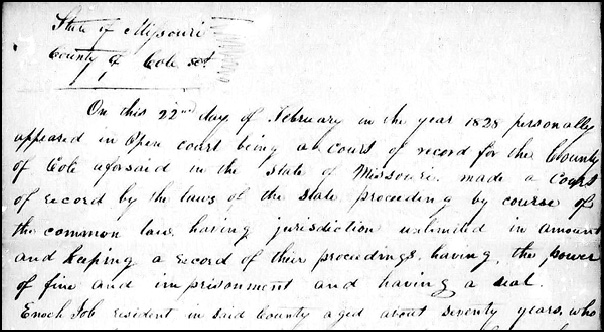 State of Missouri
County of Cole sct
On this 22nd day of February in the year 1828 personally
appeared in Open court being a court of record for the County
of Cole aforsaid in the state of Missouri made a Court
of record by the laws of the state proceeding by course of
the common law having jurisdiction unlimited in amount
and keeping a record of their proceedings, having, the power
of fine and imprisonment and having a seal.
Enoch Job resident in said County aged about seventy years, who